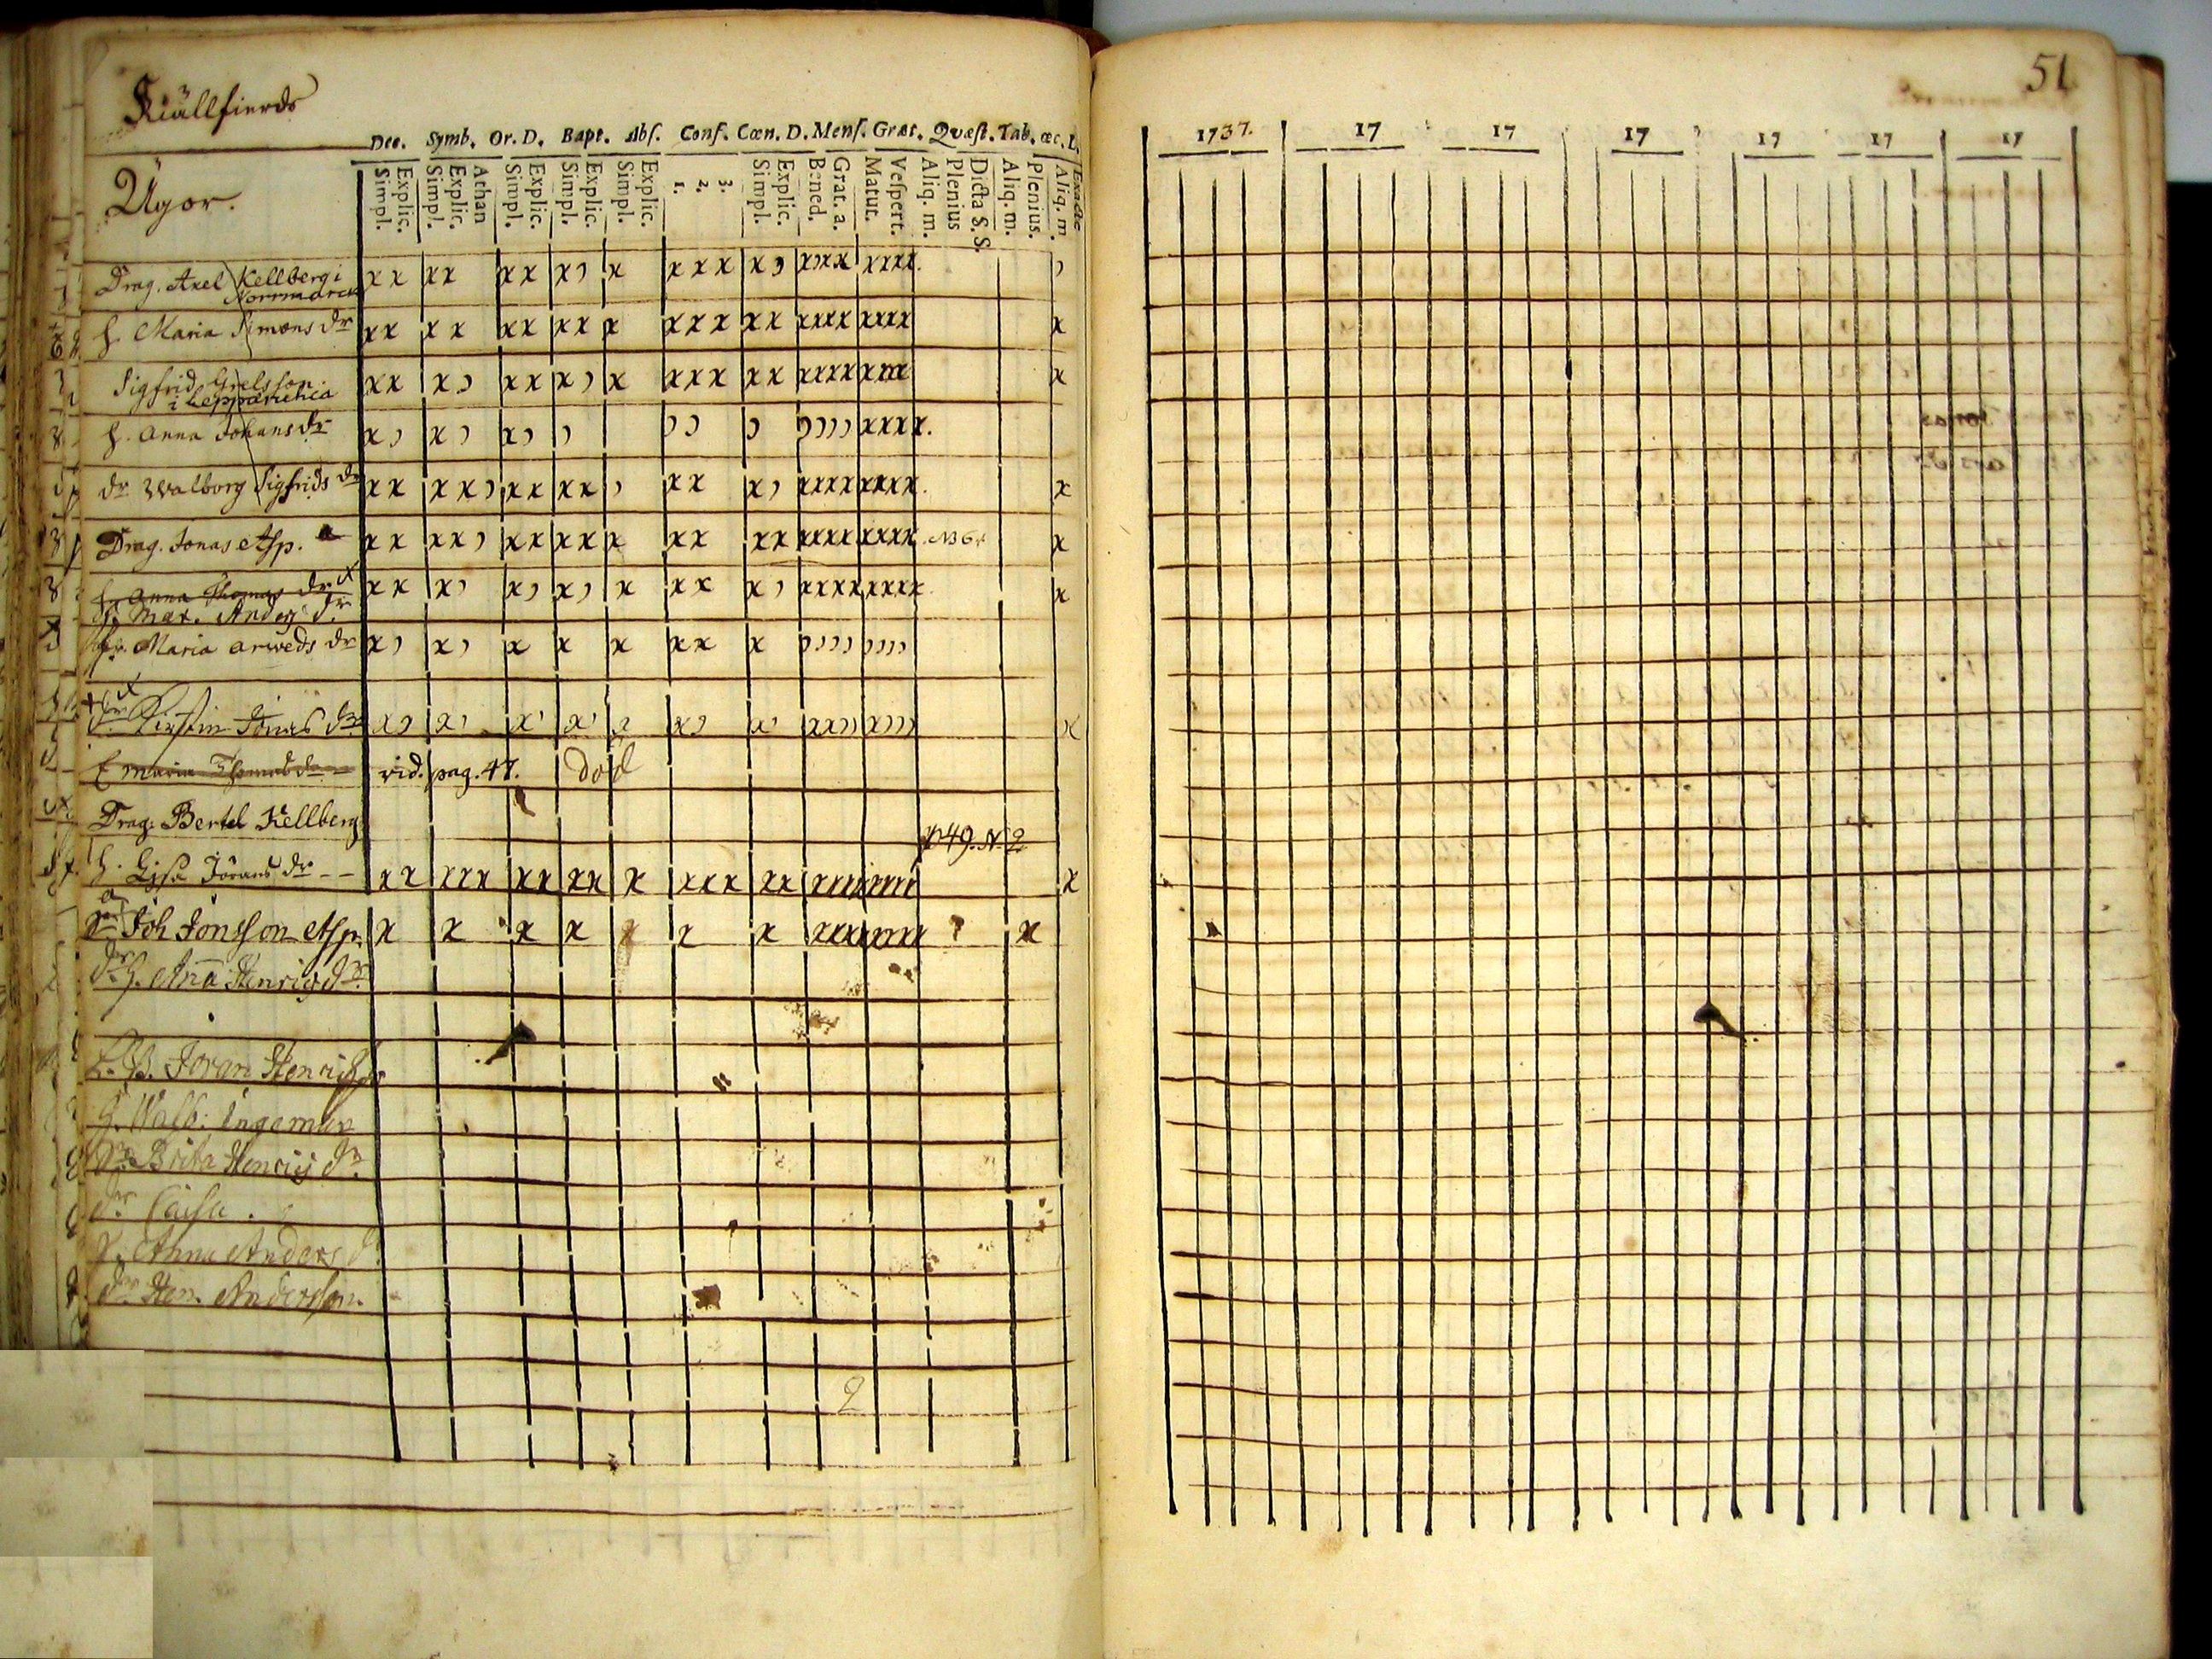 Kiällfierds
Dec. Symb. Or. D. Bapt. Abſ. Conf. Cœn. D. Menſ. Grat. Qvæſt. Tab. œc. L.
Ägor.
Simpl. Explic. Simpl. Explic. Athan Simpl. Explic. Simpl. Explic. Simpl. Explic. 1. 2. 3. Simpl. Explic. Bened. Grat. a. Matut. Veſpert. Aliq. m. Plenius Dicta S. S. Aliq. m. Plenius. Aliq. m. Exacte
Drag. Axel Kellberg i x x x x x x x ) x x x x x ) x)xx xxxx. )
Norrmarck
h. Maria Simons dr x x x x x x x x x x x x x x xxxx xxxx x
Sigfrid Grelsson. x x x ) x x x ) x x x x x x xxxx xxxx x
i Leppänehca
h. Anna Johans dr x ) x ) x ) ) ) ) ) )))) xxxx.
dr Walborg Sigfrids dr x x x x ) x x x x ) x x x ) xxxx xxxx. x
Drag. Jonas Asp. x x x x ) x x x x x x x x x xxxx xxxx. NB 6. x
h. Anna Thomas dr x x x ) x ) x ) x x x x ) xxxx xxxx. x
Mar. Anders dr.
Maria Arweds dr x ) x ) x x x x x x )))) ))))
Kirstin Jonas dr x ) x ) x ) x ) x ) x ) xx)) x))) x
E Maria Thomas dr vid. pag. 47. död
Drag. Bertel Kellberg
p 49. N. 2
h. Lisa Jörans dr - - x x x x x x x x x x x x x x x xxxx xxxx x
Joh Jönsson Asp. x x x x x x x xxxx xxxx x
h. Anna Henrics dr.
Jöran Henrichs
h. Walb. Ingemar
Brita Henrics dr.
dr Caisa.
Anna Anders d.
Hen. Andersson.
2
51
1737. 17 17 17 17 17 17